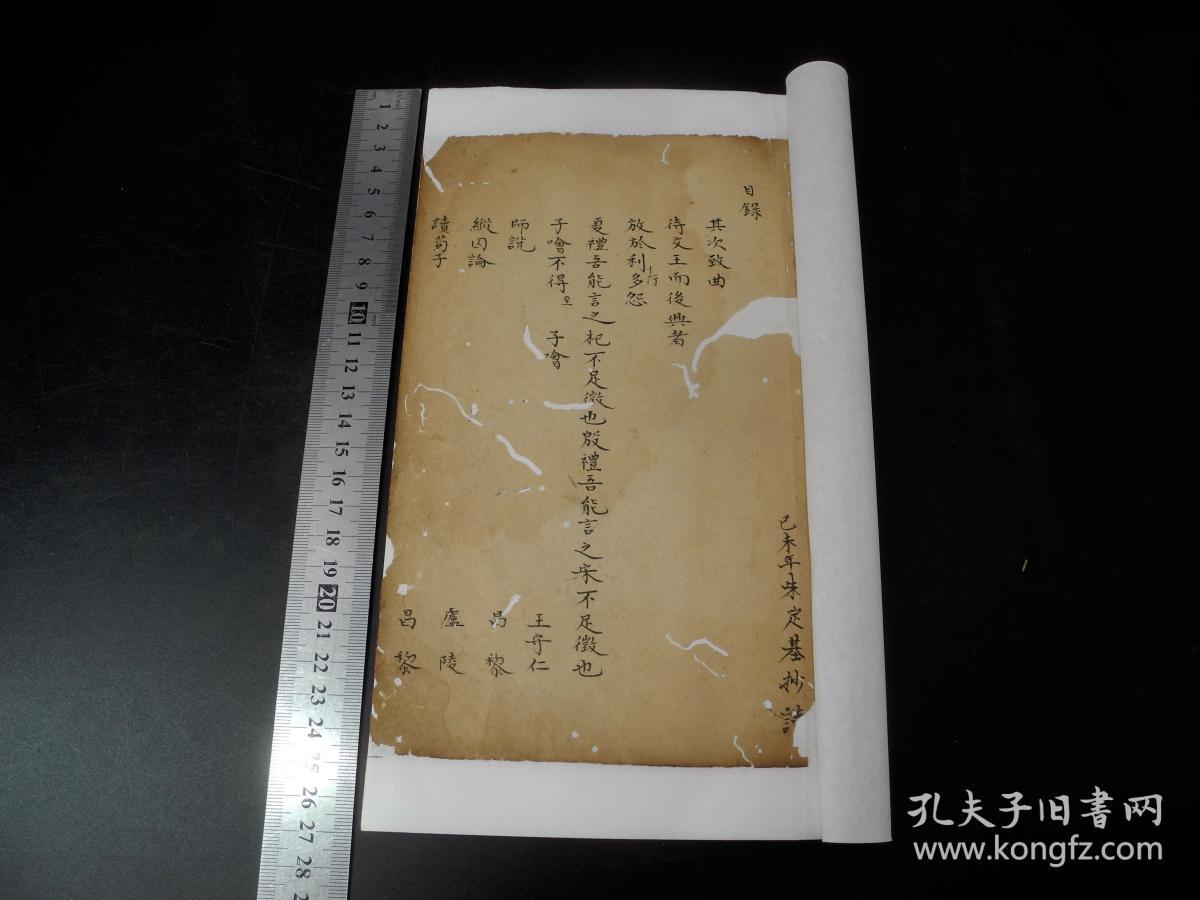 己未年朱定基抄讀
目錄
其次致曲
待文王而後興者
放於利而行多怨
夏禮吾能言之杞不足徵也殷禮吾能言之宋不足徵也
子噲不得至子噲 王守仁
師説 昌黎
縱囚論 廬陵
讀荀子 昌黎
1
2
3
4
5
6
7
8
9
10
11
12
13
14
15
16
17
18
19
20
21
22
23
24
25
26
27
28
孔夫子旧書网
www.kongfz.com